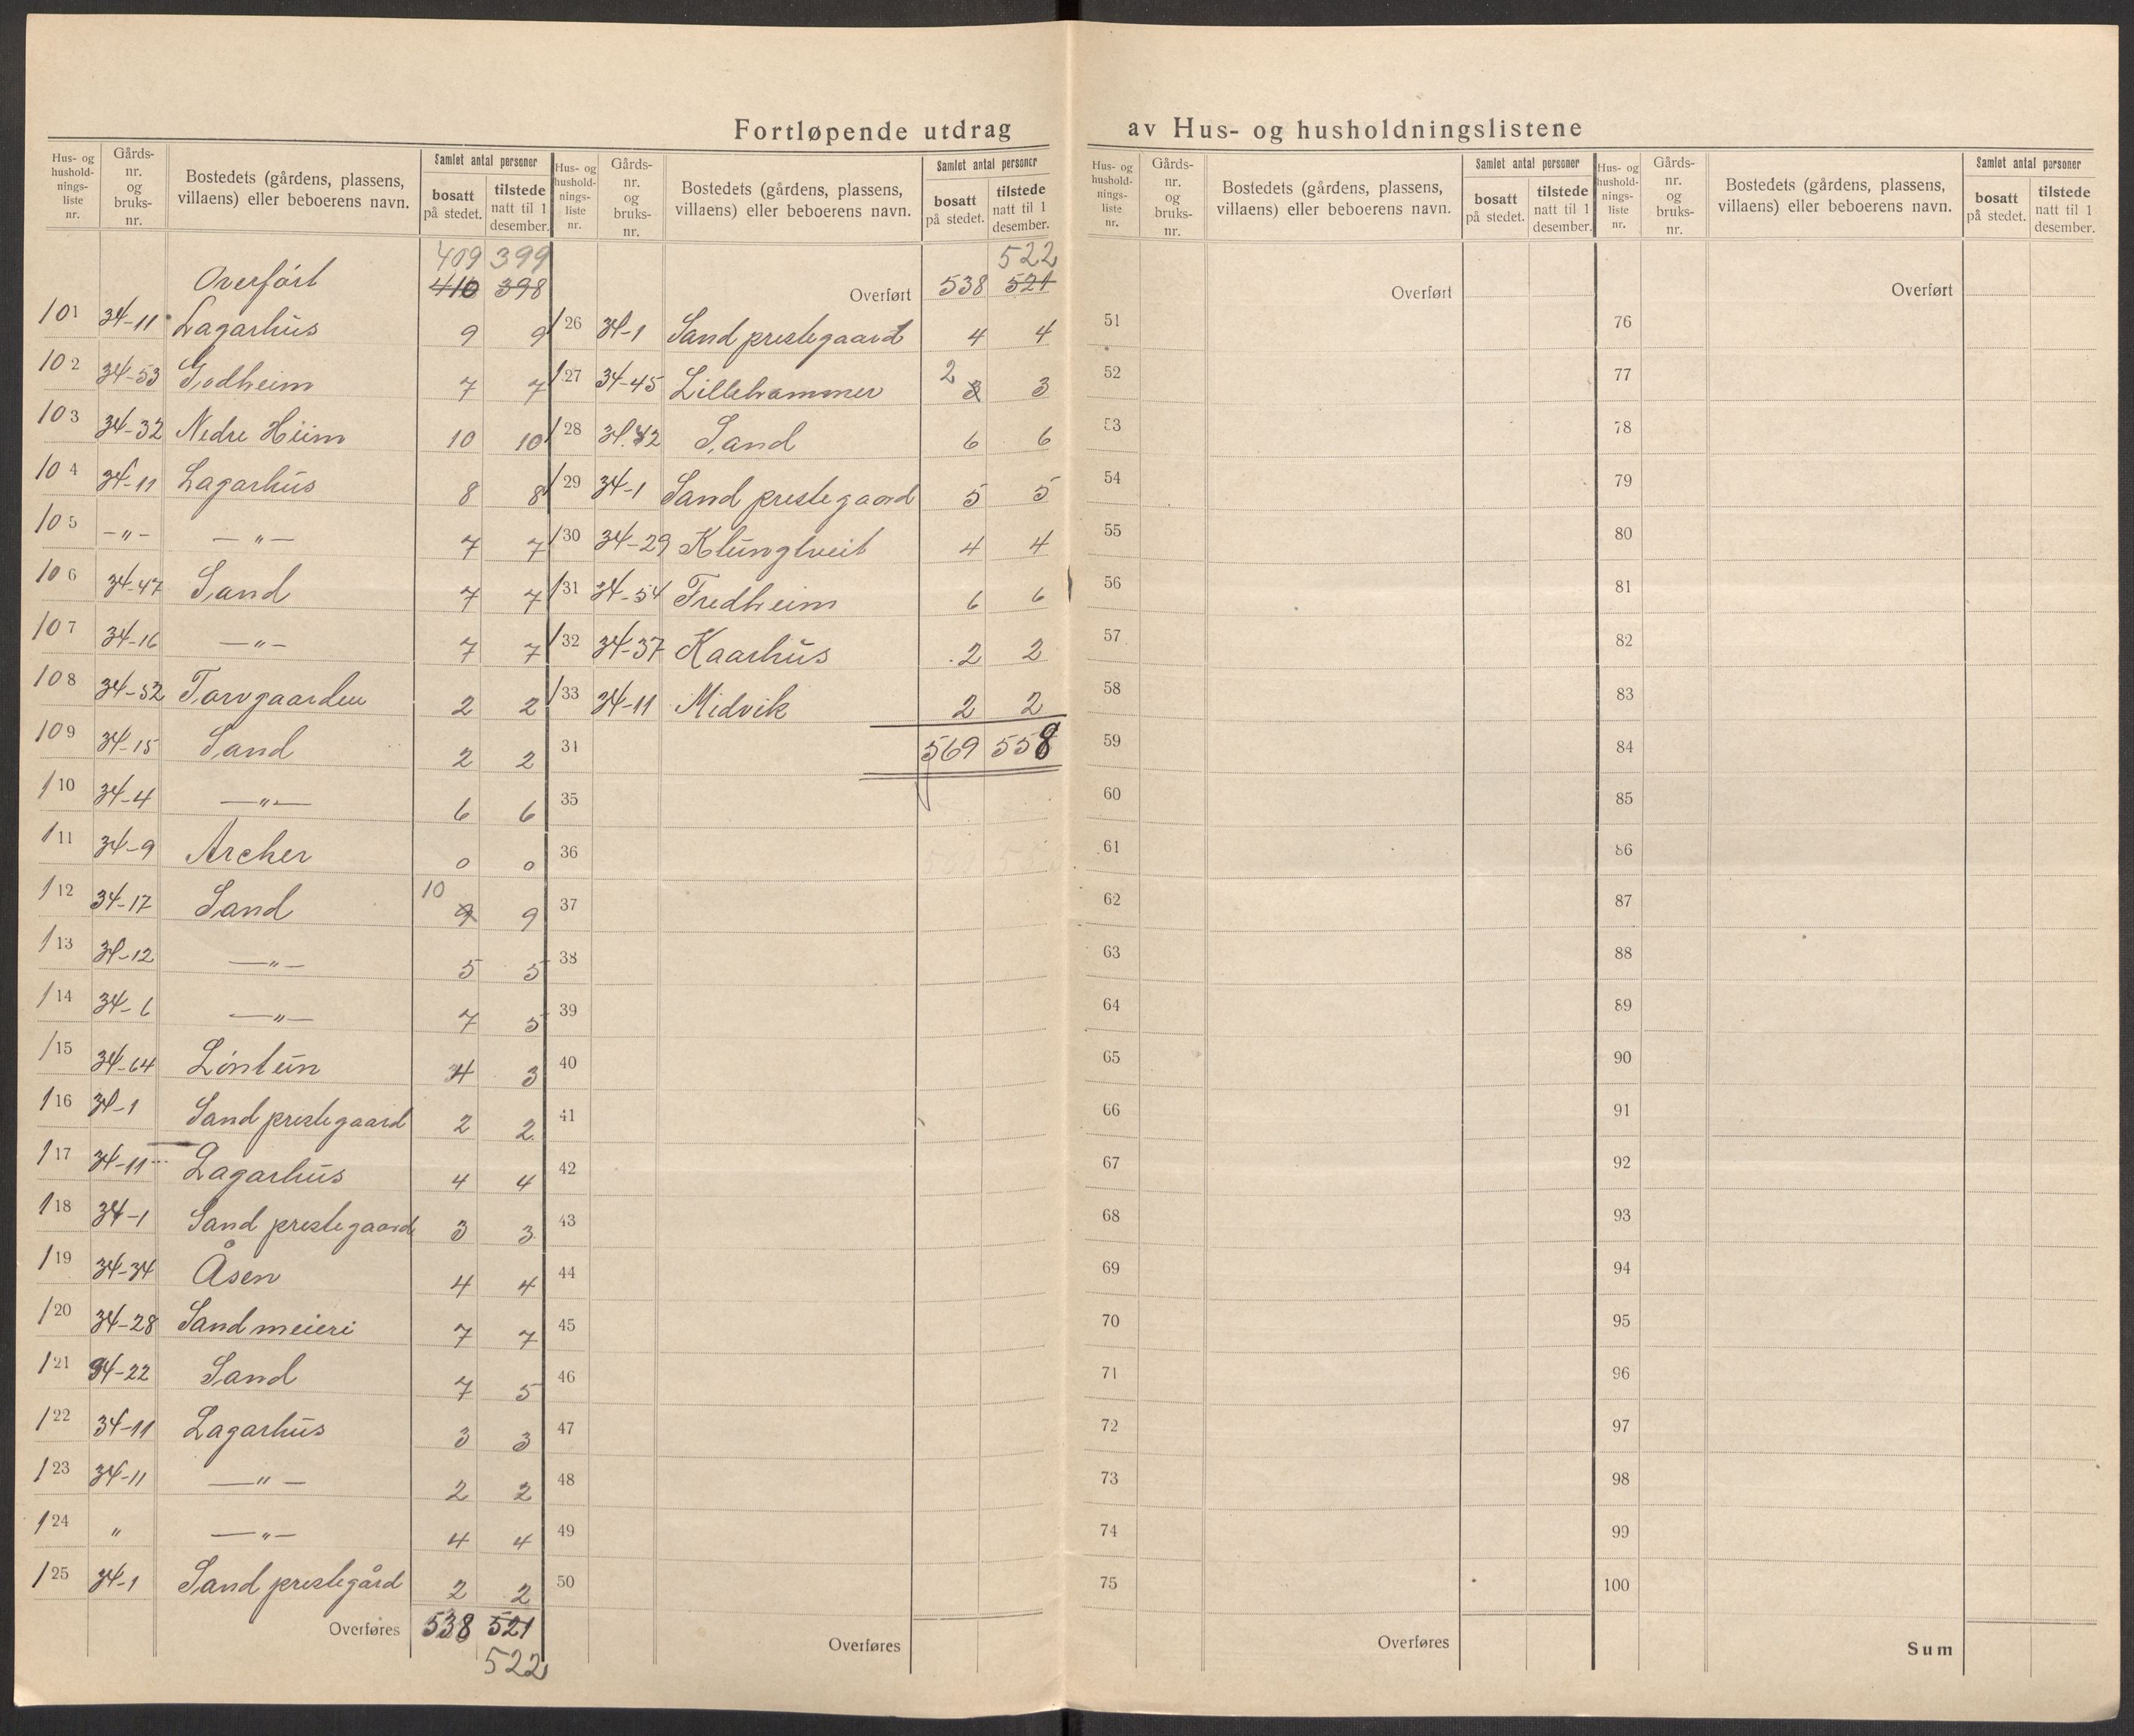 Fortløpende utdrag av Hus- og husholdningslistene
Hus- og husholdningsliste nr. | Gårds- nr. og bruks- nr. | Bostedets (gårdens, plassens, villaens) eller beboerens navn. | Samlet antal personer | bosatt på stedet. | tilstede natt til 1 desember.
409 399
Overført 410 398
101 34-11 Lagarhus 9 9
102 34-53 Godheim 7 7
103 34-32 Nedre Heim 10 10
104 34-11 Lagarhus 8 8
105 -"- -"- 7 7
106 34-47 Sand 7 7
107 34-16 -"- 7 7
108 34-52 Torvgaarden 2 2
109 34-15 Sand 2 2
110 34-4 -"- 6 6
111 34-9 Archer 0 0
112 34-17 Sand 10 9 9
113 34-12 -"- 5 5
114 34-6 -"- 7 5
115 34-64 Løntun 4 3
116 34-1 Sand prestegaard 2 2
117 34-11 Lagarhus 4 4
118 34-1 Sand prestegaard 3 3
119 34-34 Åsen 4 4
120 34-28 Sand meieri 7 7
121 34-22 Sand 7 5
122 34-11 Lagarhus 3 3
123 34-11 -"- 2 2
124 " -"- 4 4
125 34-1 Sand prestegård 2 2
Overføres 538 521
522
Hus- og husholdningsliste nr. | Gårds- nr. og bruks- nr. | Bostedets (gårdens, plassens, villaens) eller beboerens navn. | Samlet antal personer | bosatt på stedet. | tilstede natt til 1 desember.
522
Overført 538 521
126 34-1 Sand prestegaard 4 4
127 34-45 Lillehammer 2 3 3
128 34.42 Sand 6 6
129 34-1 Sand prestegaard 5 5
130 34-29 Klungtveit 4 4
131 34-54 Fredheim 6 6
132 34-37 Kaarhus 2 2
133 34-11 Midvik 2 2
34 569 558
35
36
37
38
39
40
41
42
43
44
45
46
47
48
49
50
Overføres
Hus- og husholdningsliste nr. | Gårds- nr. og bruks- nr. | Bostedets (gårdens, plassens, villaens) eller beboerens navn. | Samlet antal personer | bosatt på stedet. | tilstede natt til 1 desember.
Overført
51
52
53
54
55
56
57
58
59
60
61
62
63
64
65
66
67
68
69
70
71
72
73
74
75
Overføres
Hus- og husholdningsliste nr. | Gårds- nr. og bruks- nr. | Bostedets (gårdens, plassens, villaens) eller beboerens navn. | Samlet antal personer | bosatt på stedet. | tilstede natt til 1 desember.
Overført
76
77
78
79
80
81
82
83
84
85
86
87
88
89
90
91
92
93
94
95
96
97
98
99
100
Sum